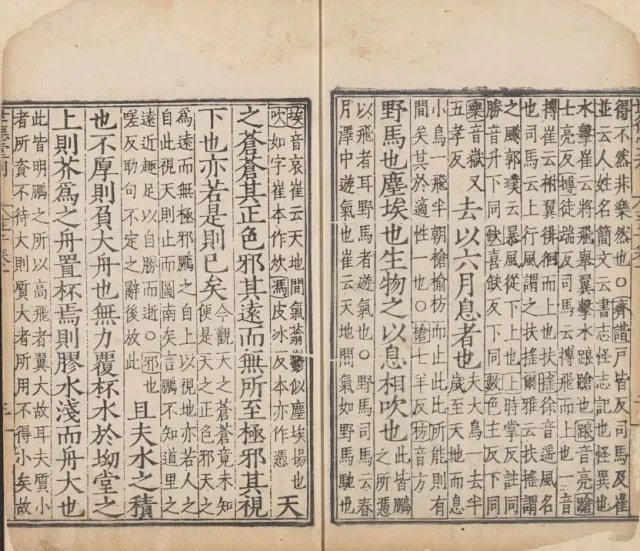 得不然非樂然也〇齊諧戶皆反司馬及崔
並云人姓名簡文云書志怪志記也怪異也
水擊崔云將飛舉翼擊水踉蹌也踉音亮蹌
士亮反摶徒端反司馬云摶飛而上也一音
搏崔云拊翼徘徊而上也扶搖徐音遥風名
也司馬云上行風謂之扶搖爾雅云扶搖謂
之飇郭璞云暴風從下上也上時掌反註同
勝音升下同喜缺反下同數色主反下同
樂音嶽又
五孝反
去以六月息者也
夫大鳥一去半
歲至天池而息
小鳥一飛半朝槍榆枋而止此比所能則有
間矣其於適性一也〇槍七羊反枋音方
野馬也塵埃也生物之以息相吹也
此皆鵬
之所憑
以飛者耳野馬者遊氣也〇野馬司馬云春
月澤中遊氣也崔云天地間氣如野馬馳也
埃音哀崔云天地間氣蓊鬱似塵埃揚也
吹如字崔本作炊馮皮冰反本亦作憑
天
之蒼蒼其正色邪其遠而無所至極邪其視
下也亦若是則已矣
今觀天之蒼蒼竟未知
便是天之正色邪天之
為遠而無極邪鵬之自上以視地亦若人之
自此視天則止而圖南矣言鵬不知道里之
遠近趣足以自勝而逝〇邪也
嗟反助句不定之辭後放此
且夫水之積
也不厚則負大舟也無力覆杯水於坳堂之
上則芥為之舟置杯焉則膠水淺而舟大也
此皆明鵬之所以高飛者翼大故耳夫質小
者所資不待大則質大者所用不得小矣故